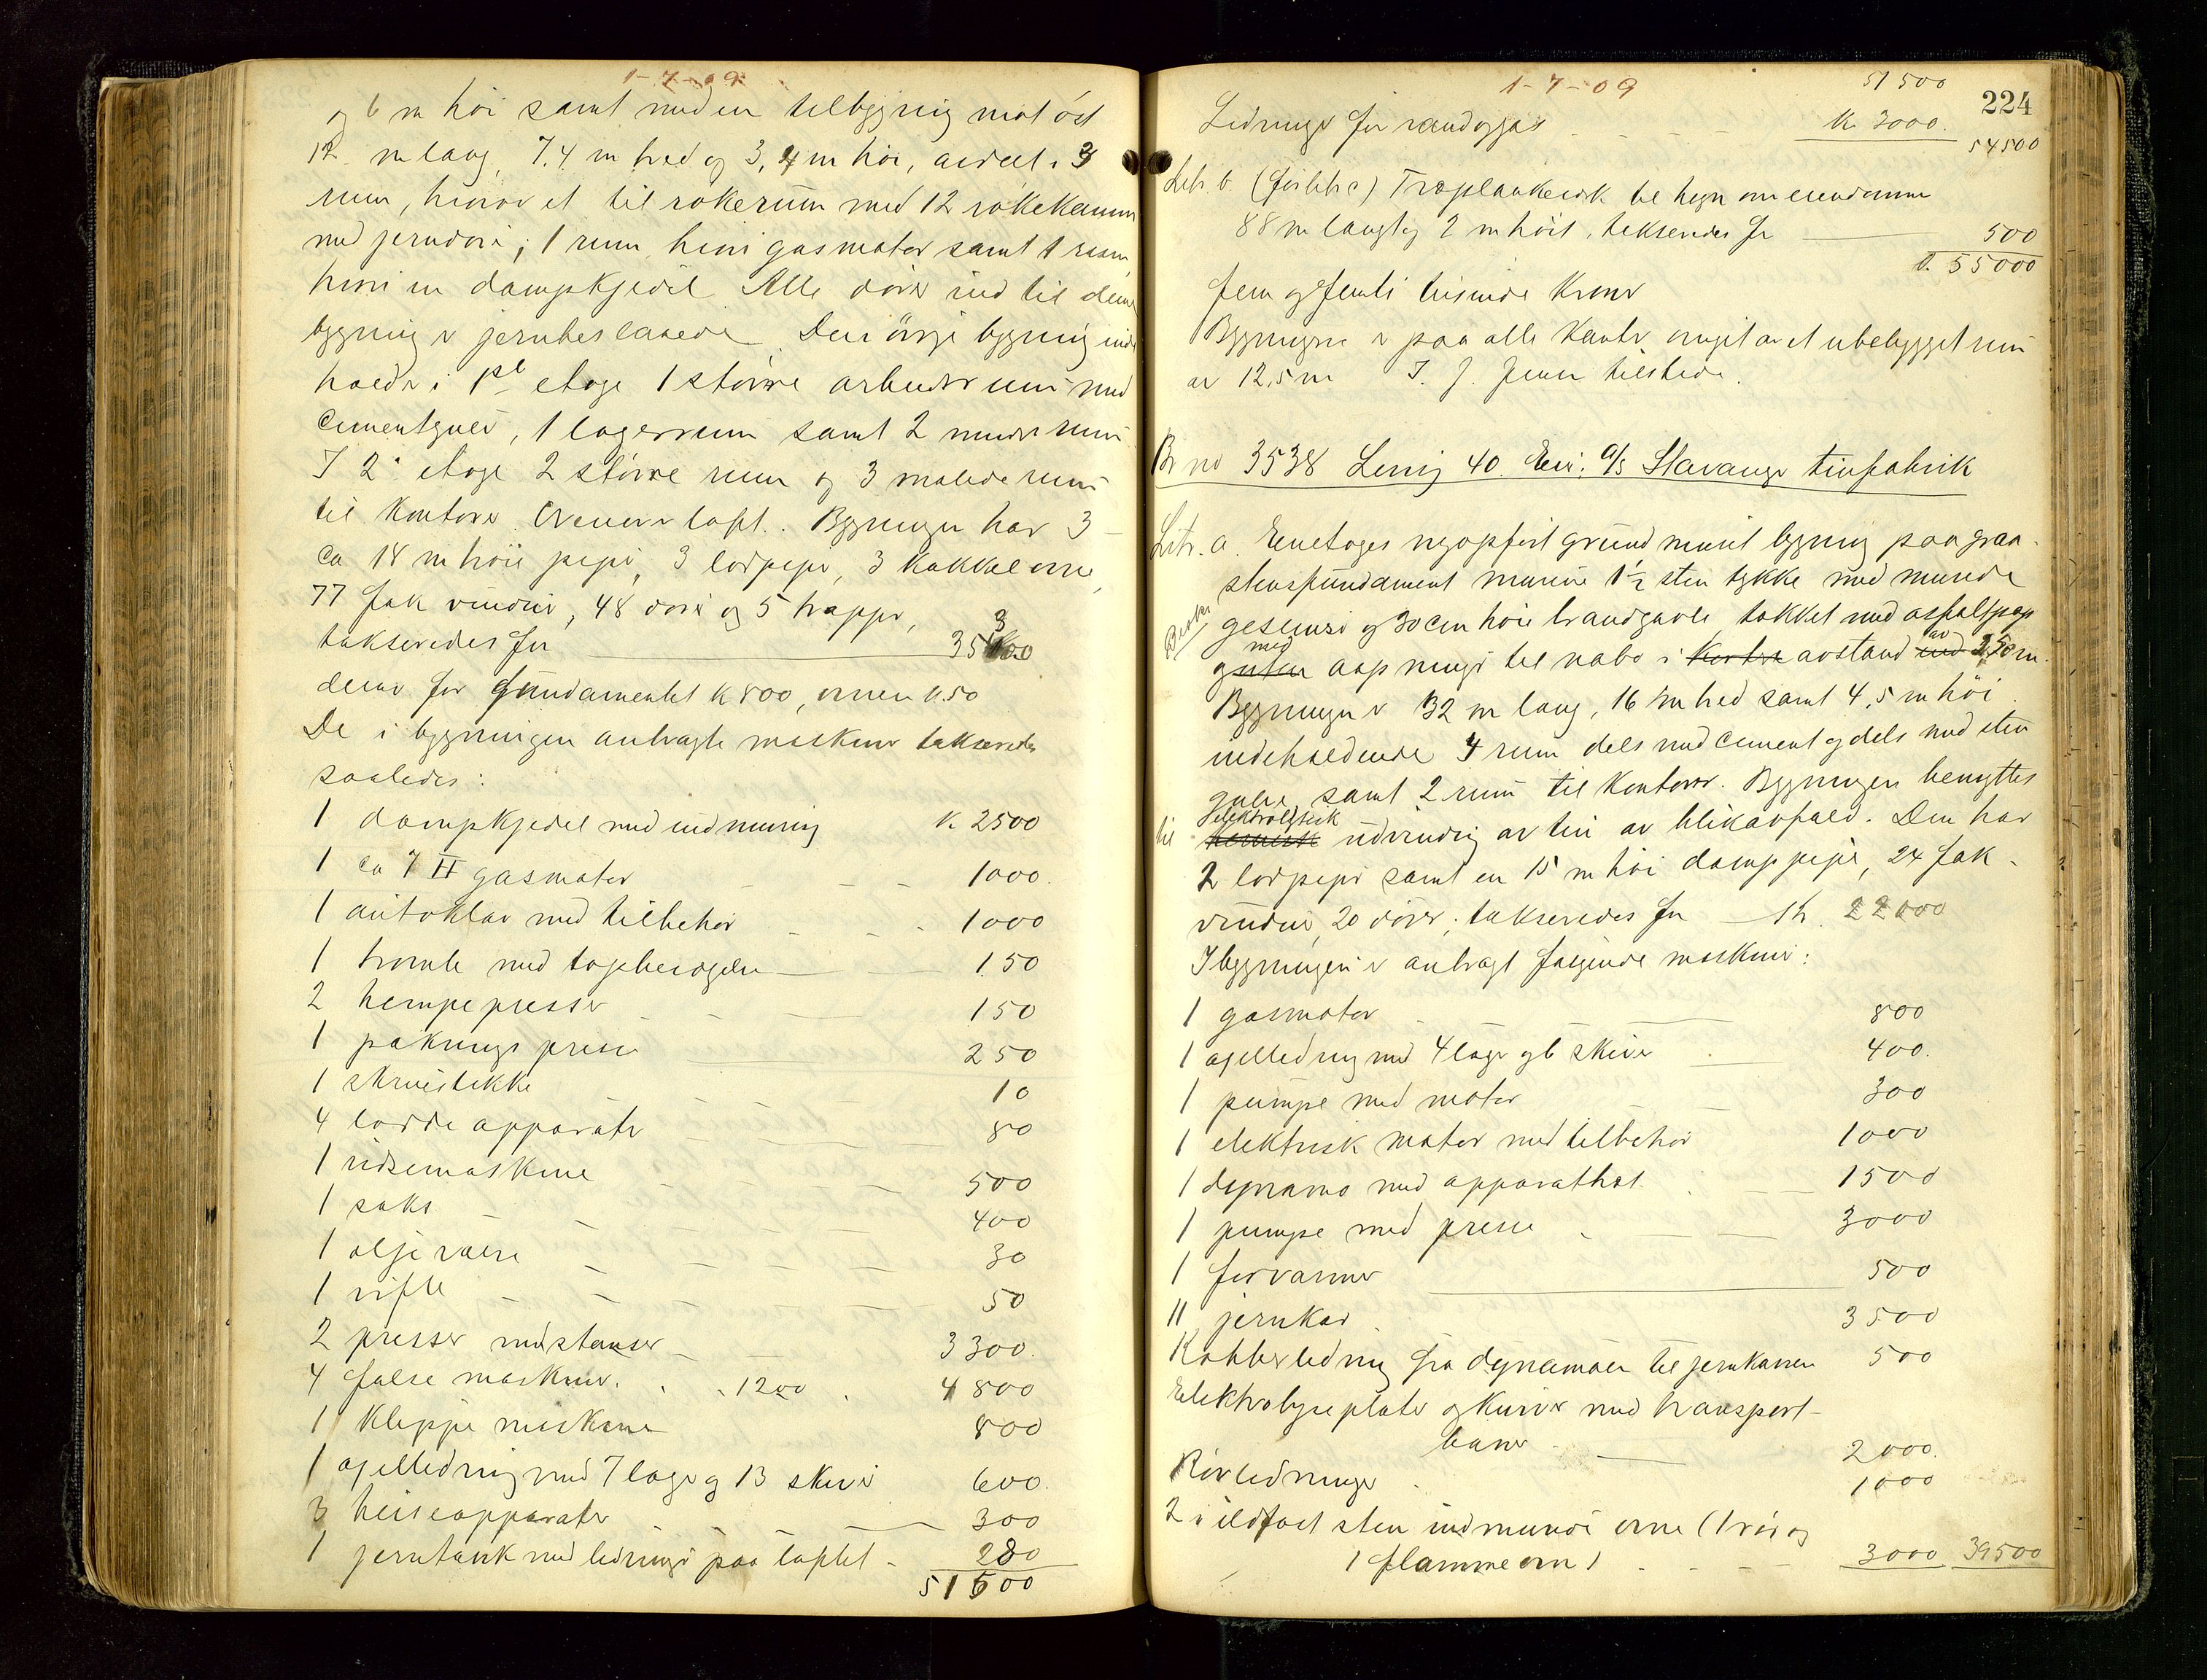 1-7-09
og 6 m høi samt med en tilbygning mot øst
12 m lang, 7.4 m bred og 3,4 m høi, avdelt i 3
rum, hvorav et til røkerum med 12 røkekammer
med jerndøre; 1 rum hvori gasmotor samt 1 rum
hvori en dampkjedel. Alle døre ind til denne
bygning er jernbeslaaede. Den øvrige bygning inde
holder i 1ste etage 1 større arbeidsrum med
cementgulv, 1 lagerrum samt 2 mindre rum
I 2. etage 2 større rum og 3 malede rum
til kontorer. Ovenover loft. Bygningen har 3
ca 18 m høie piper, 3 luftpiper, 3 kakkelovne,
77 fak vinduer, 48 døre og 5 trapper,
takseredes for 35
derav for fundamentet k 800, ovnen k. 50
De i bygningen anbragte maskiner takseredes
saaledes:
1 dampkjedel med indmuring k. 2500
1 ca 7 H gasmotor 1000.
1 autoklav med tilbehør 1000
1 tromle med 150
2 hempepresser 150
1 paknings presse 250
1 skruestikke 10
4 lodde apparater 80
1 ridsemaskine 500
1 saks 400
1 olje 30
1 vifte 50
2 presser med stanser 3300.
4 false maskiner. 1200. 4800
1 klippe maskine 800
1 axelledning med 7 lager og 13 skiver 600.
3 heiseapparater 300
1 jerntank med ledninger paa loftet 280
51500
1-7-09
51500
224
Ledninger for vand og gas k. 3000.
54500
Litr. b. (før litr c) Træplankeverk til hegn om eiendommen
88 m langt og 2 m høit, takseredes for 500
k. 55000
fem og femti tusinde kroner
Bygningerne er paa alle kanter omgit av et ubebygget rum
av 12,5 m T. J. Jensen tilstede.
Br no 3538 Lenvig 40. Eier: A/S Stavanger tinfabrik
Litr. a. Enetages nyopført grundmuret bygning paa graa-
stensfundament murene 1½ sten tykke med murede
gesimser og 30 cm høie brandgavle takket med asfaltpap
med
aapninger til nabo i kortere avstand end av 2,50 m.
Bygningen er 32 m lang, 16 m bred samt 4,5 m høi
indeholdende 4 rum dels med cement og dels med sten
gulve samt 2 rum til kontorer. Bygningen benyttes
elektrolytisk
til kemisk utvinding av tin av blikavfald. Den har
2 luftpiper samt en 15 m høi damppipe, 24 fak
vinduer, 20 døre, takseredes for k. 22000
I bygningen er anbragt følgende maskiner:
1 gasmotor 800
1 axelledning med 4 lager og 6 skiver 400.
1 pumpe med motor 300
1 elektrisk motor med tilbehør 1000
1 dynamo med apparathat 1500
1 pumpe med presse 3000
1 forvarmer 500
11 jernkar 3500
Kobberledning fra dynamoen til jernkarrene 500
Elektrolyseplater og kurver med transport-
baner 2000.
Rørledninger 1000
2 i ildfast sten indmurede ovne (1 rør og
1 flammeovn) 3000 39500